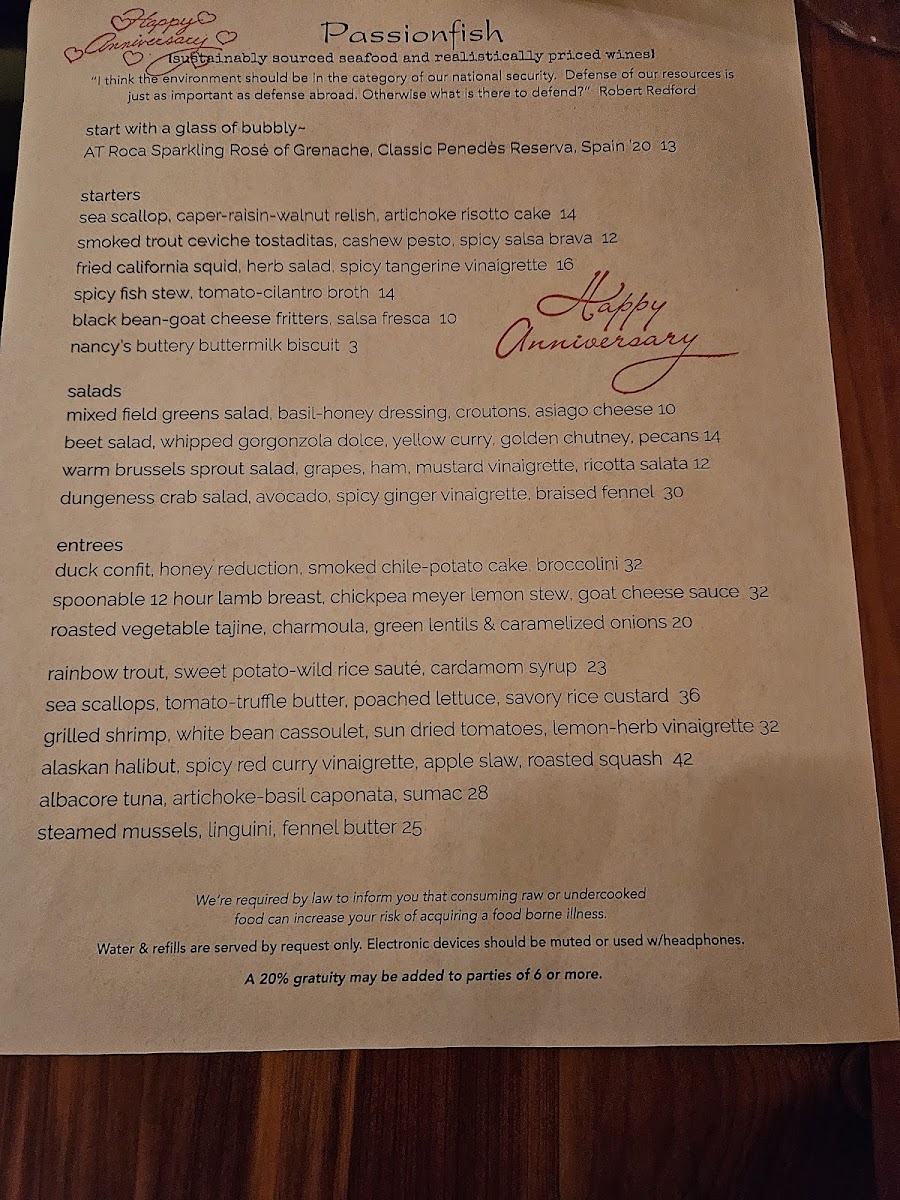 Happy
Anniversary
Passionfish
{sustainably sourced seafood and realistically priced wines}
"I think the environment should be in the category of our national security. Defense of our resources is
just as important as defense abroad. Otherwise what is there to defend?" Robert Redford
start with a glass of bubbly~
AT Roca Sparkling Rosé of Grenache, Classic Penedès Reserva, Spain '20 13
starters
sea scallop, caper-raisin-walnut relish, artichoke risotto cake 14
smoked trout ceviche tostaditas, cashew pesto, spicy salsa brava 12
fried california squid, herb salad, spicy tangerine vinaigrette 16
spicy fish stew, tomato-cilantro broth 14
black bean-goat cheese fritters, salsa fresca 10
nancy's buttery buttermilk biscuit 3
Happy
Anniversary
salads
mixed field greens salad, basil-honey dressing, croutons, asiago cheese 10
beet salad, whipped gorgonzola dolce, yellow curry, golden chutney, pecans 14
warm brussels sprout salad, grapes, ham, mustard vinaigrette, ricotta salata 12
dungeness crab salad, avocado, spicy ginger vinaigrette, braised fennel 30
entrees
duck confit, honey reduction, smoked chile-potato cake, broccolini 32
spoonable 12 hour lamb breast, chickpea meyer lemon stew, goat cheese sauce 32
roasted vegetable tajine, charmoula, green lentils & caramelized onions 20
rainbow trout, sweet potato-wild rice sauté, cardamom syrup 23
sea scallops, tomato-truffle butter, poached lettuce, savory rice custard 36
grilled shrimp, white bean cassoulet, sun dried tomatoes, lemon-herb vinaigrette 32
alaskan halibut, spicy red curry vinaigrette, apple slaw, roasted squash 42
albacore tuna, artichoke-basil caponata, sumac 28
steamed mussels, linguini, fennel butter 25
We're required by law to inform you that consuming raw or undercooked
food can increase your risk of acquiring a food borne illness.
Water & refills are served by request only. Electronic devices should be muted or used w/headphones.
A 20% gratuity may be added to parties of 6 or more.